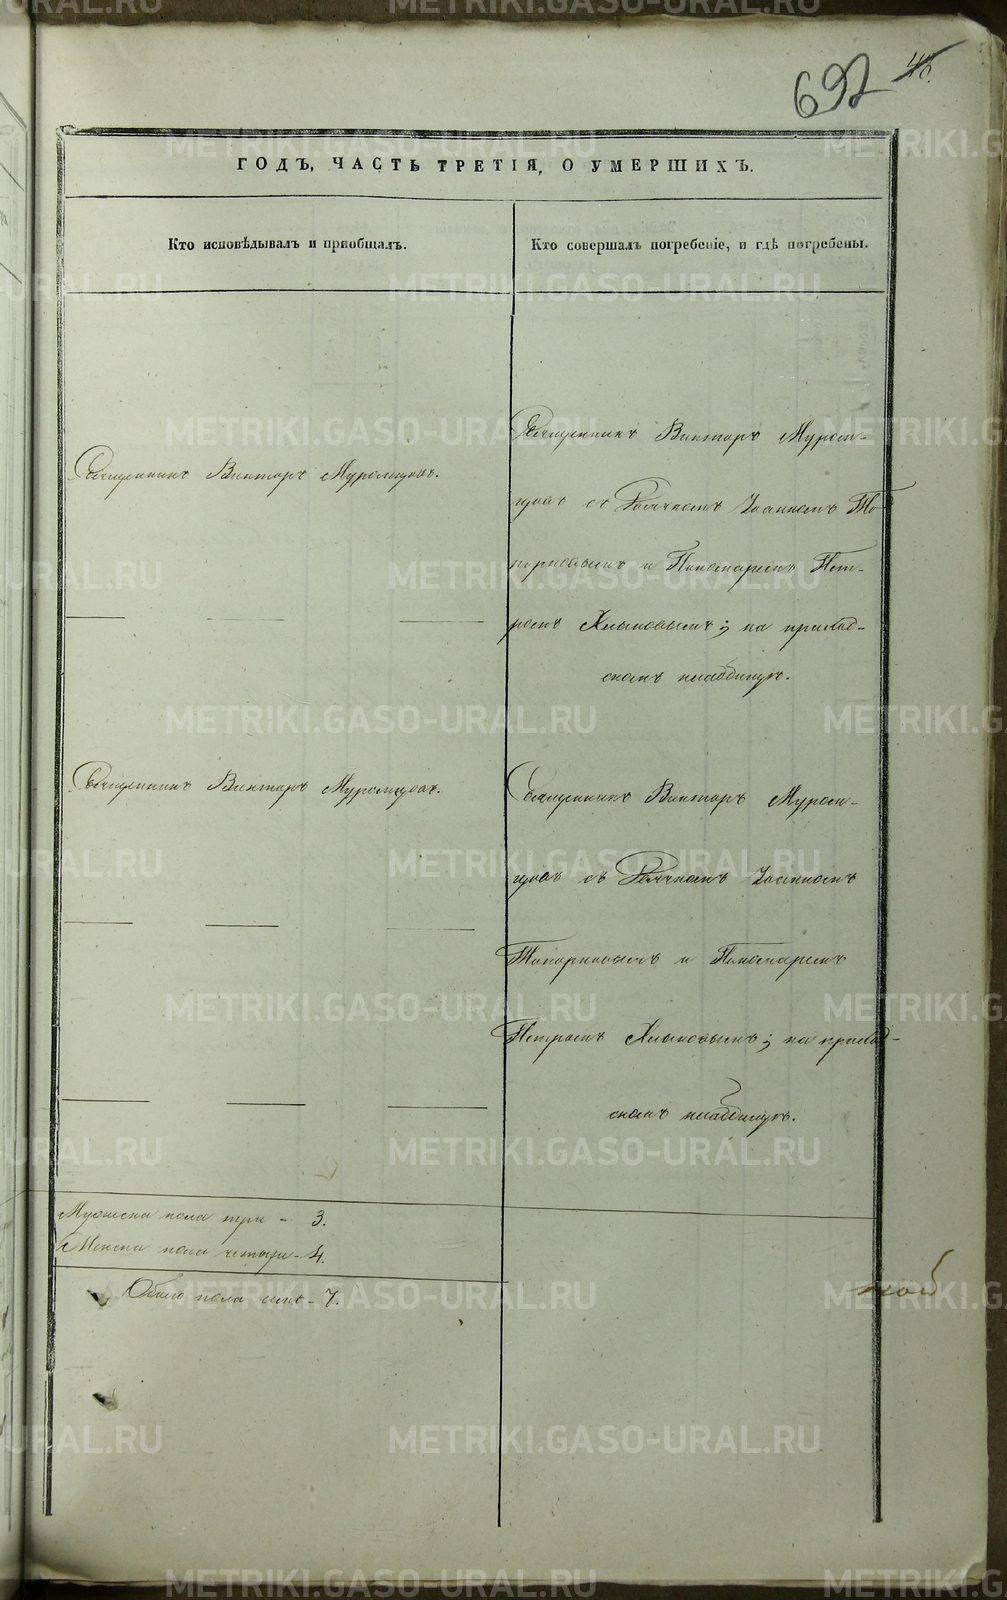 692
ГОДЪ, ЧАСТЬ ТРЕТІЯ, О УМЕРШИХЪ.
Кто исповѣдывалъ и пріобщалъ.
Кто совершалъ погребеніе, и гдѣ погребены.
Священникъ Викторъ Муромцовъ.
Священникъ Викторъ Муром-
цовъ съ Дьячкомъ Іоанномъ То-
порковымъ и Пономаремъ Пет-
ромъ Хлыновымъ; на приход-
скомъ кладбищѣ.
Священникъ Викторъ Муромцовъ.
Священникъ Викторъ Муром-
цовъ съ Дьячкомъ Іоанномъ
Топорковымъ и Пономаремъ
Петромъ Хлыновымъ; на приход-
скомъ кладбищѣ.
Мужеска пола три - 3.
Женска пола четыре - 4.
Обоего пола семь - 7.
METRIKI.GASO-URAL.RU